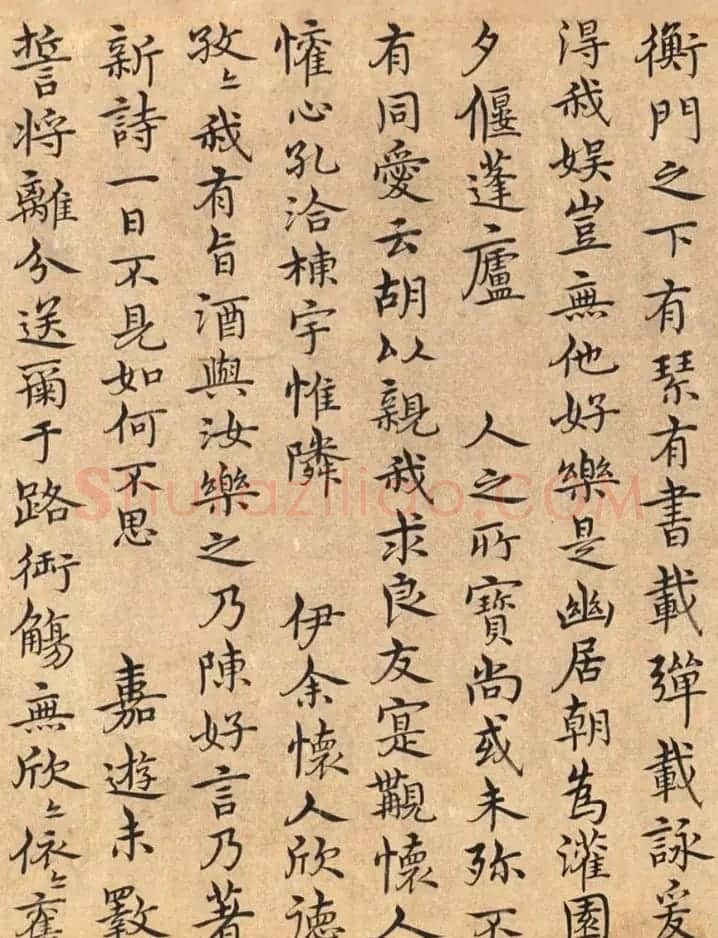 衡門之下有琴有書載彈載詠爰
得我娛豈無他好樂是幽居朝為灌園
夕偃蓬廬　人之所寶尚或未珍不
有同愛云胡以親我求良友寔覯懷人
懽心孔洽棟宇惟隣　伊余懷人欣德
孜〻我有旨酒與汝樂之乃陳好言乃著
新詩一日不見如何不思　嘉遊未斁
誓將離分送爾于路銜觴無欣〻依〻舊
Shufaziliao.COM